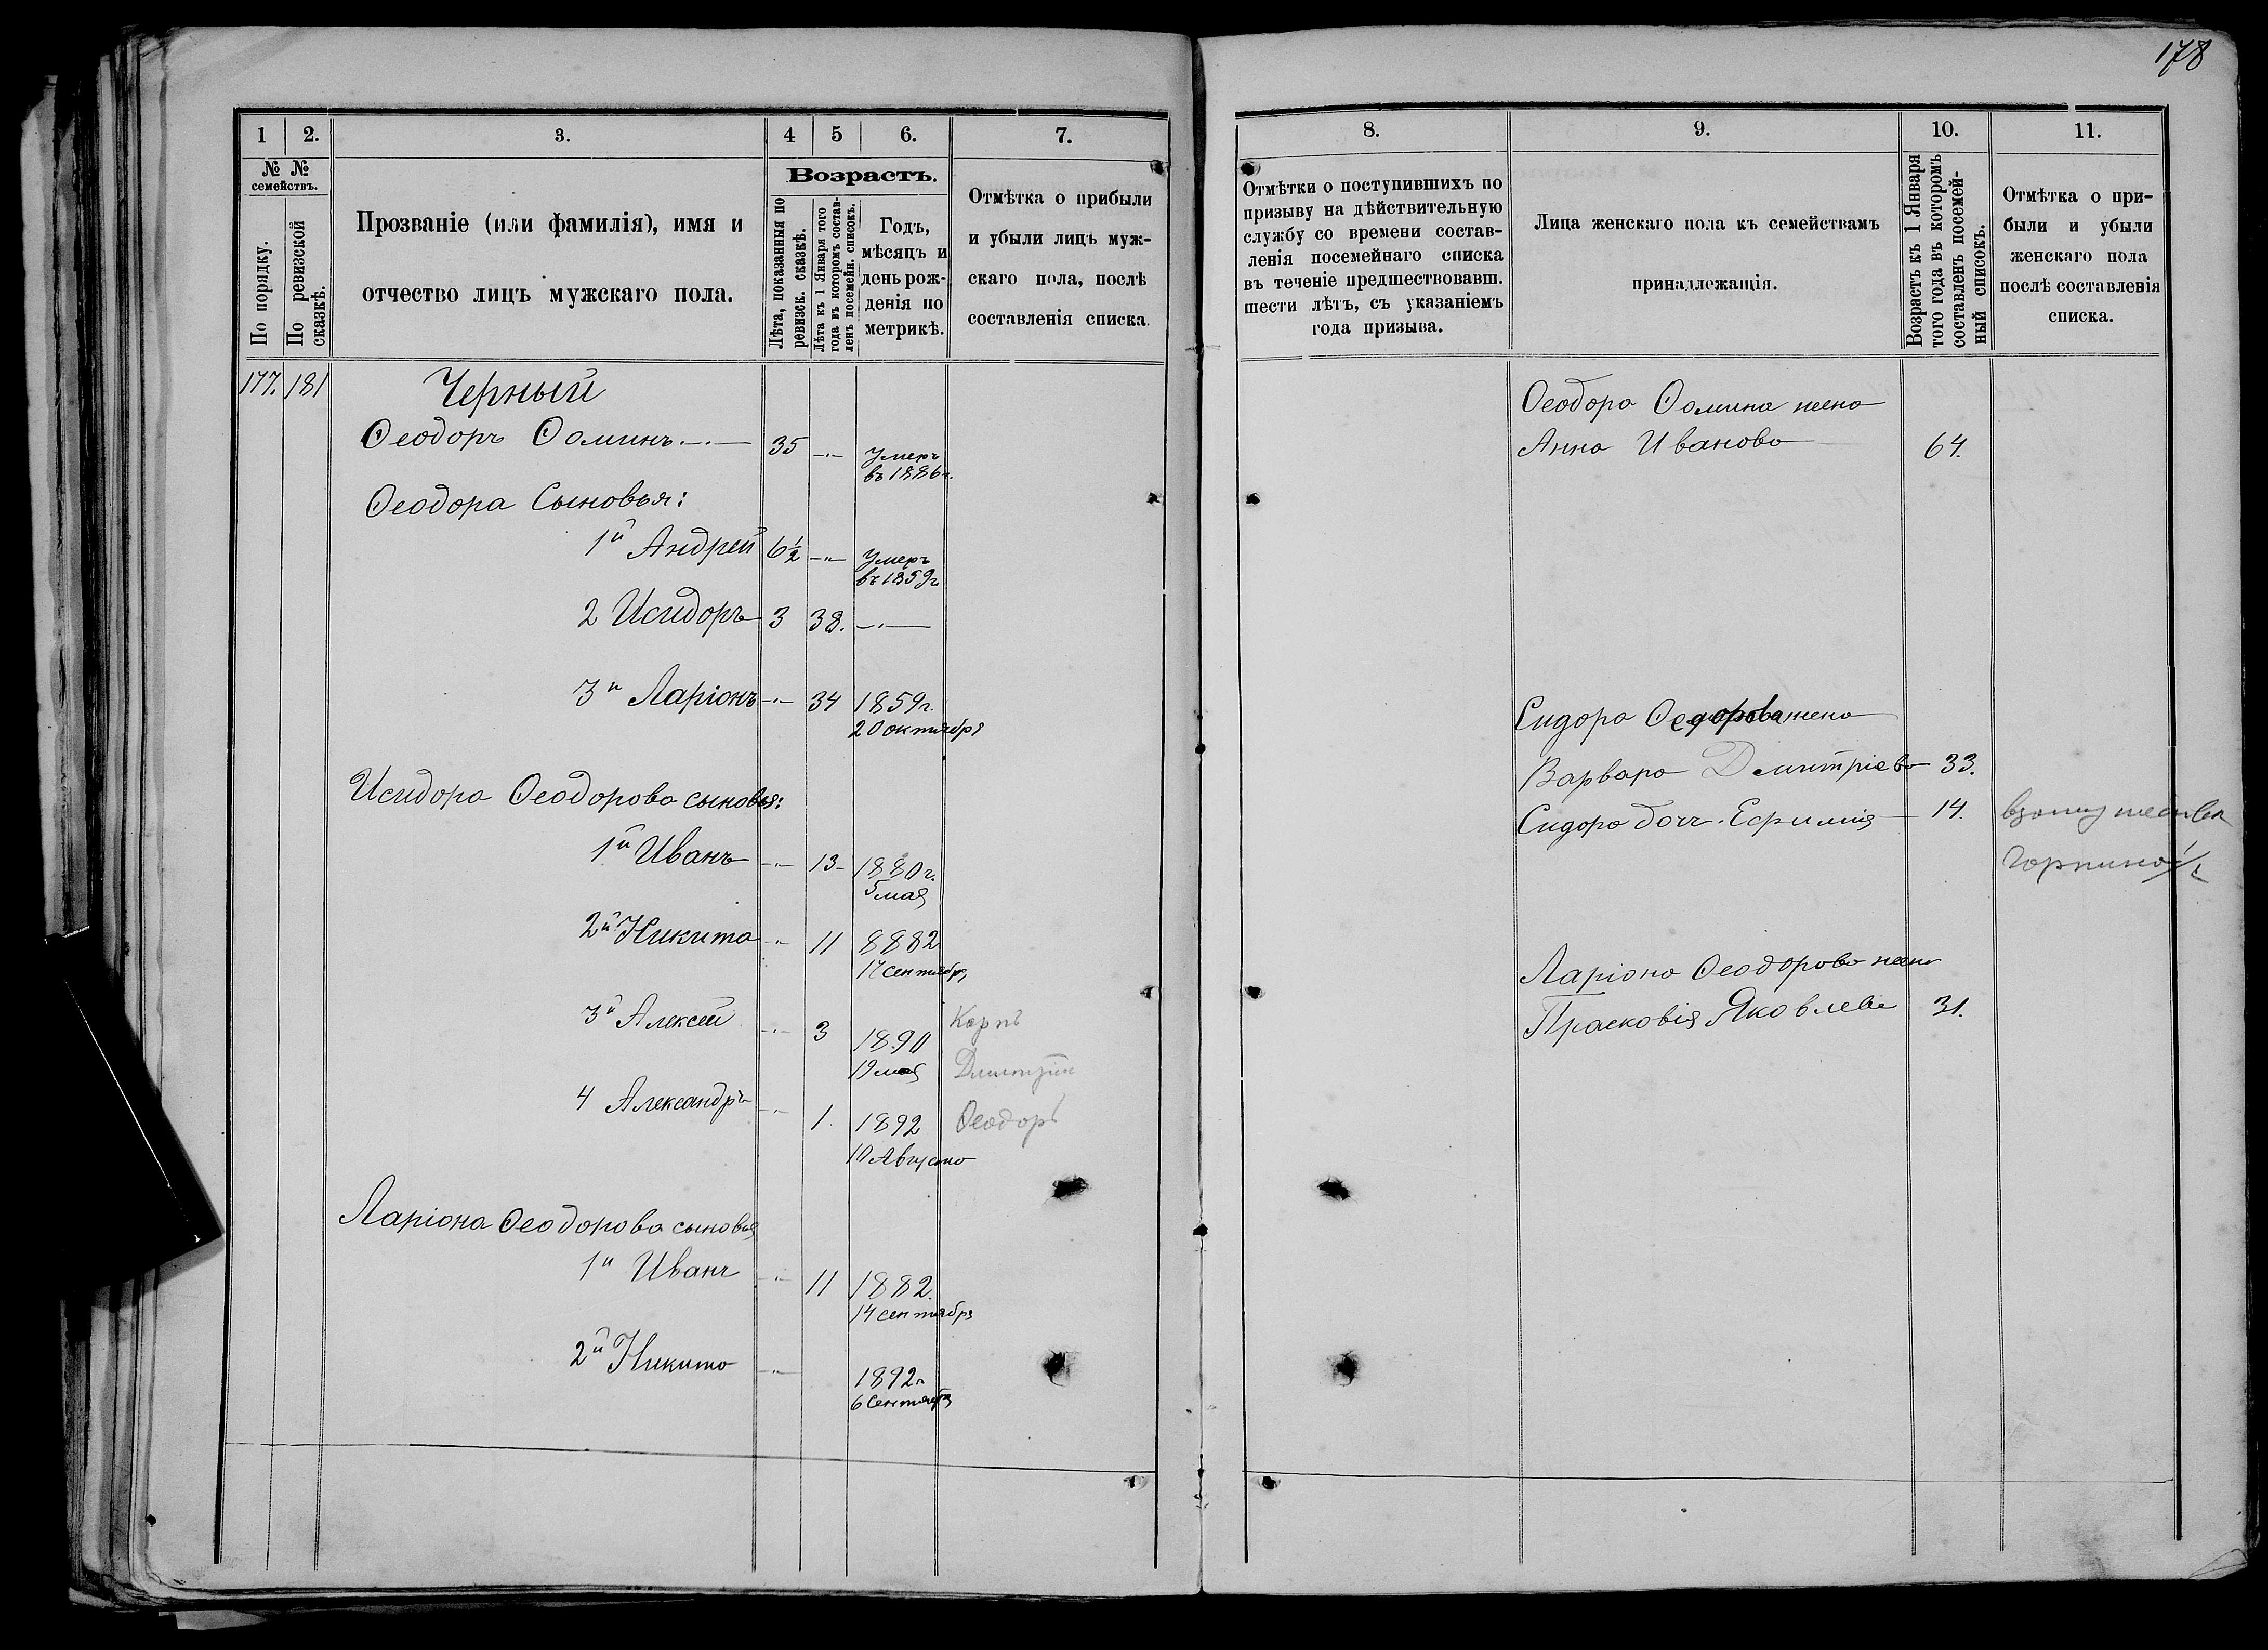 178
1 2. 3. 4 5 6. 7.
№ № семействъ.
По порядку.
По ревизской сказкѣ.
Прозваніе (или фамилія), имя и
отчество лицъ мужскаго пола.
Возрастъ.
Лѣта, показанныя по
ревизск. сказкѣ.
Лѣта къ 1 Января того
года въ которомъ состав-
ленъ посемейн. списокъ.
Годъ,
мѣсяцъ и
день рож-
денія по
метрикѣ.
Отмѣтка о прибыли
и убыли лицъ муж-
скаго пола, послѣ
составленія списка.
177. 181 Черный
Ѳеодоръ Ѳоминъ 35 Умеръ
въ 1886 г.
Ѳеодора Сыновья:
1й Андрей 6½ Умеръ
въ 1859 г
2 Исидоръ 3 38.
3й Ларіонъ 34 1859 г.
20 октября
Исидора Ѳеодорова сыновья:
1й Иванъ 13 1880 г.
5 мая
2й Никита 11 8882
17 сентября
3й Алексей 3 1890
19 мая
Карпъ
Дмитрій
4 Александръ 1. 1892
10 Августа
Ѳеодоръ
Ларіона Ѳеодорова сыновья
1й Иванъ 11 1882.
14 сентября
2й Никита 1892 г
6 Сентября
8. 9. 10. 11.
Отмѣтки о поступившихъ по
призыву на дѣйствительную
службу со времени состав-
ленія посемейнаго списка
въ теченіе предшествовавш.
шести лѣтъ, съ указаніемъ
года призыва.
Лица женскаго пола къ семействамъ
принадлежащія.
Возрастъ къ 1 Января
того года въ которомъ
составленъ посемей-
ный списокъ.
Отмѣтка о при-
были и убыли
женскаго пола
послѣ составленія
списка.
Ѳеодора Ѳомина жена
Анна Иванова 64.
Сидора Ѳедорова жена
Варвара Дмитріева 33.
Сидора доч. Ефимія 14.
Ларіона Ѳеодорова жена
Прасковія Яковлева 31.